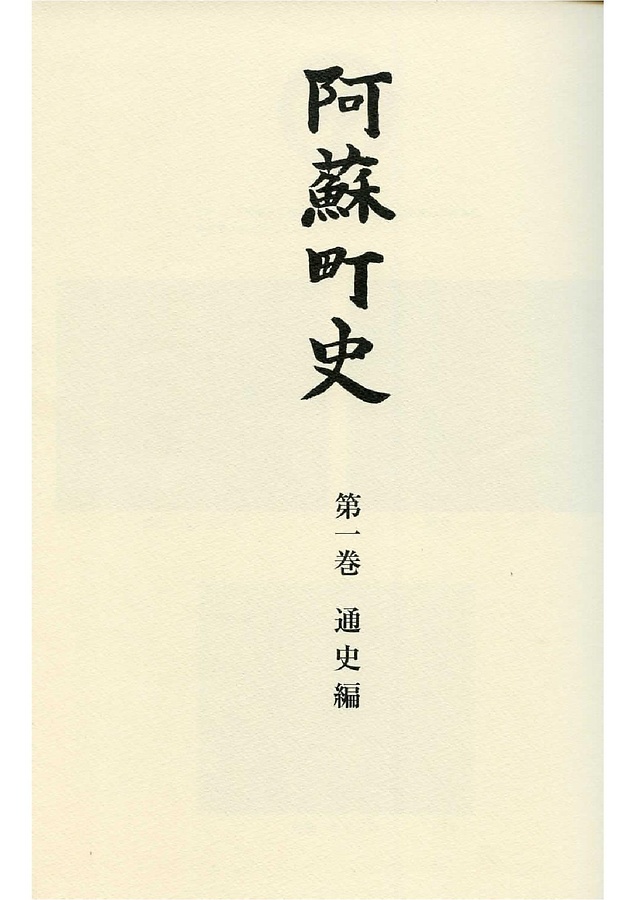 阿蘇町史
第一巻 通史編